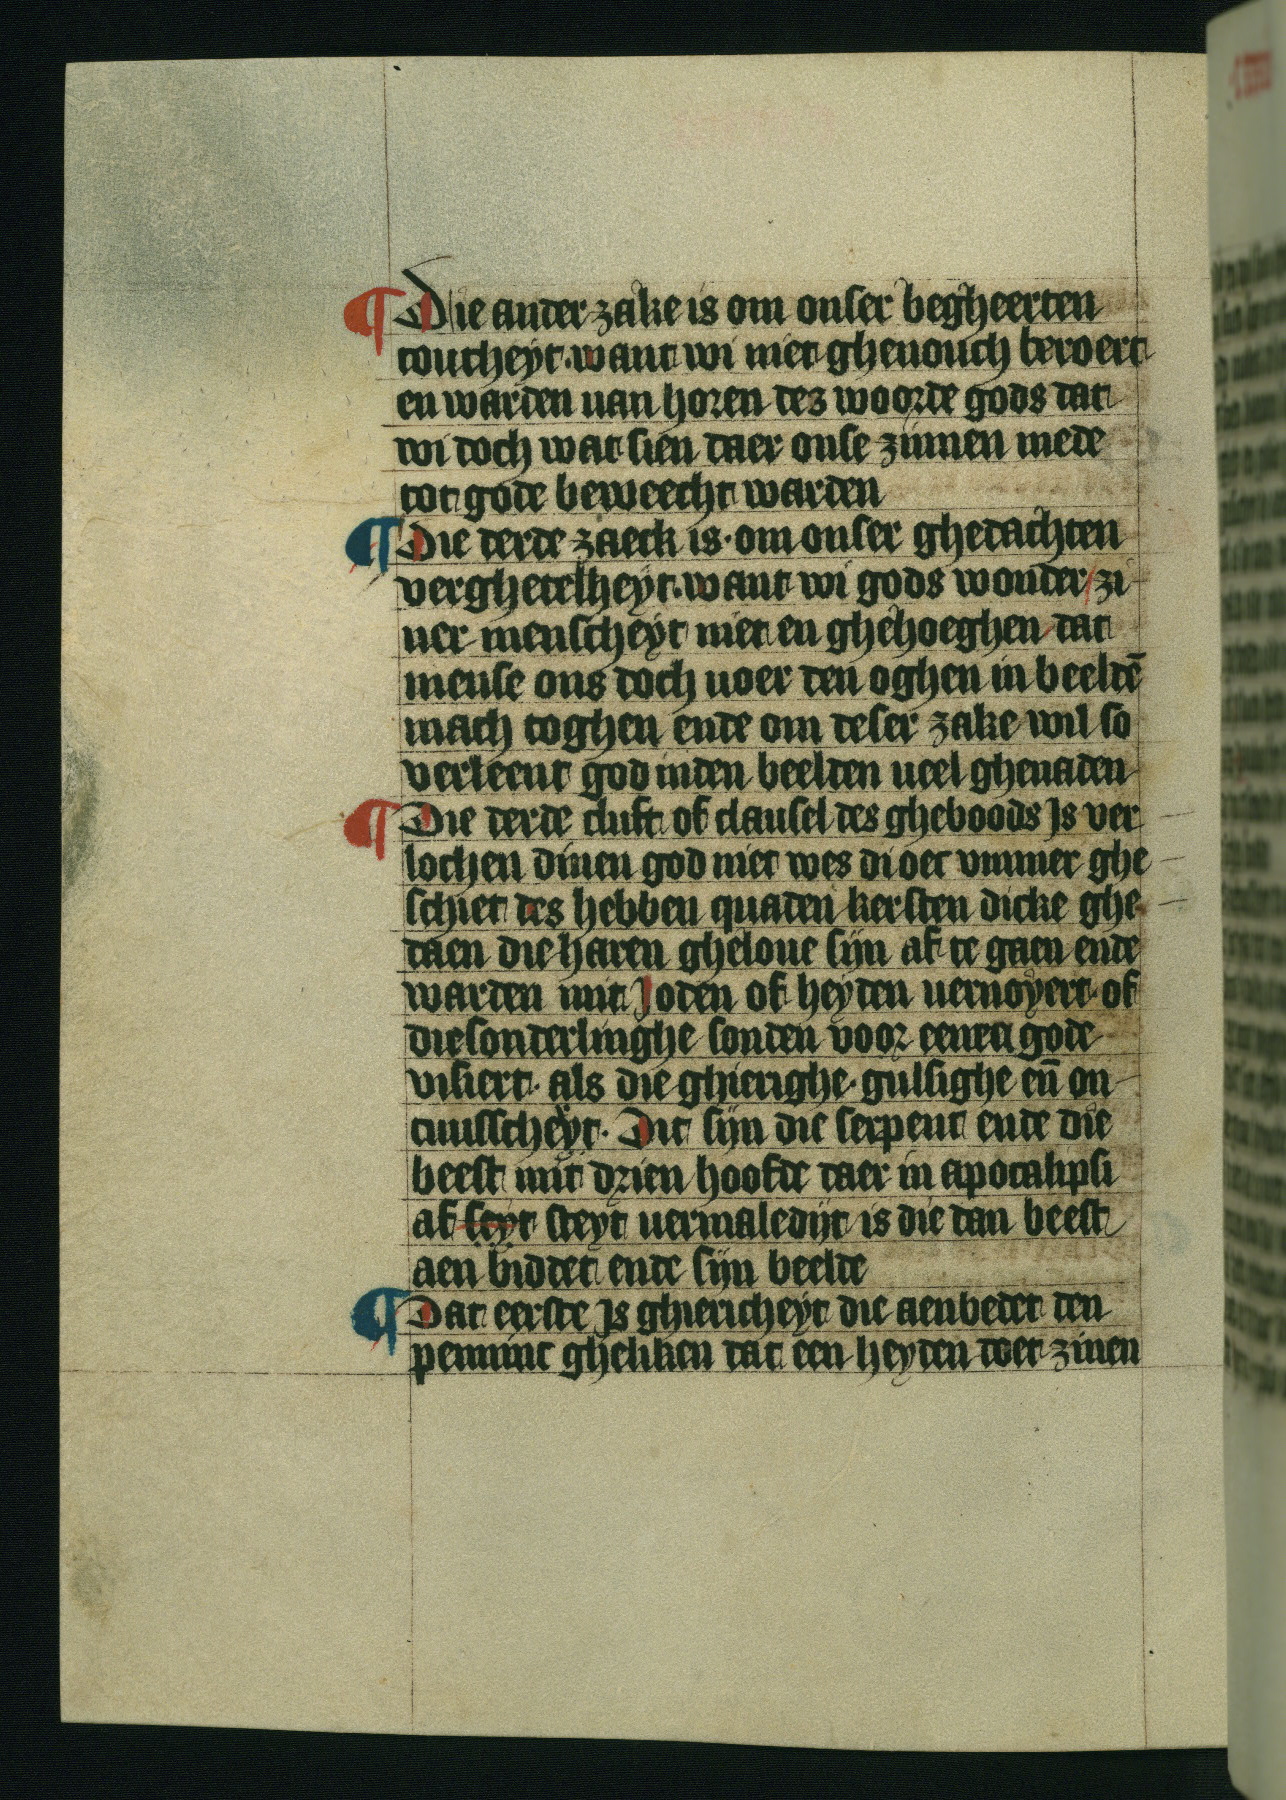 ¶ Die ander zake is om onser begheerten
coutheyt· want wi niet ghenouch beroert
en warden van horen des woorde gods dat
wi doch wat sien daer onse zinnen mede
tot gode beweecht warden
¶ Die derde zaeck is· om onser ghedachten
verghetelheyt· want wi gods wonder / zi
ner menscheyt niet en ghehoeghen dat
mense ons doch voer den oghen in beeldē
mach toghen ende om deser zake wil so
verleent god inden beelden veel ghenaden
¶ Die derde cluft of clausel des gheboods Js ver
lochen dinen god niet wes di oec vmmer ghe
schiet des hebben quaden kersten dicke ghe
daen die haren gheloue sijn af te gaen ende
warden mit Joden of heyden vernoyert· of
die sonderlinghe sonden voor enen gode
visiert· als die ghierighe· gulsighe en̄ on
cuusscheyt· Dit sijn die serpent ende die
beest mit drien hoofde daer in apocalipsi
af steyt steyt vermaledijt is die dan beest
aen biddet ende sijn beelde
¶ Dat eerste Js ghiericheyt die aenbedet den
penninc gheliken dat een heyden doet zinen